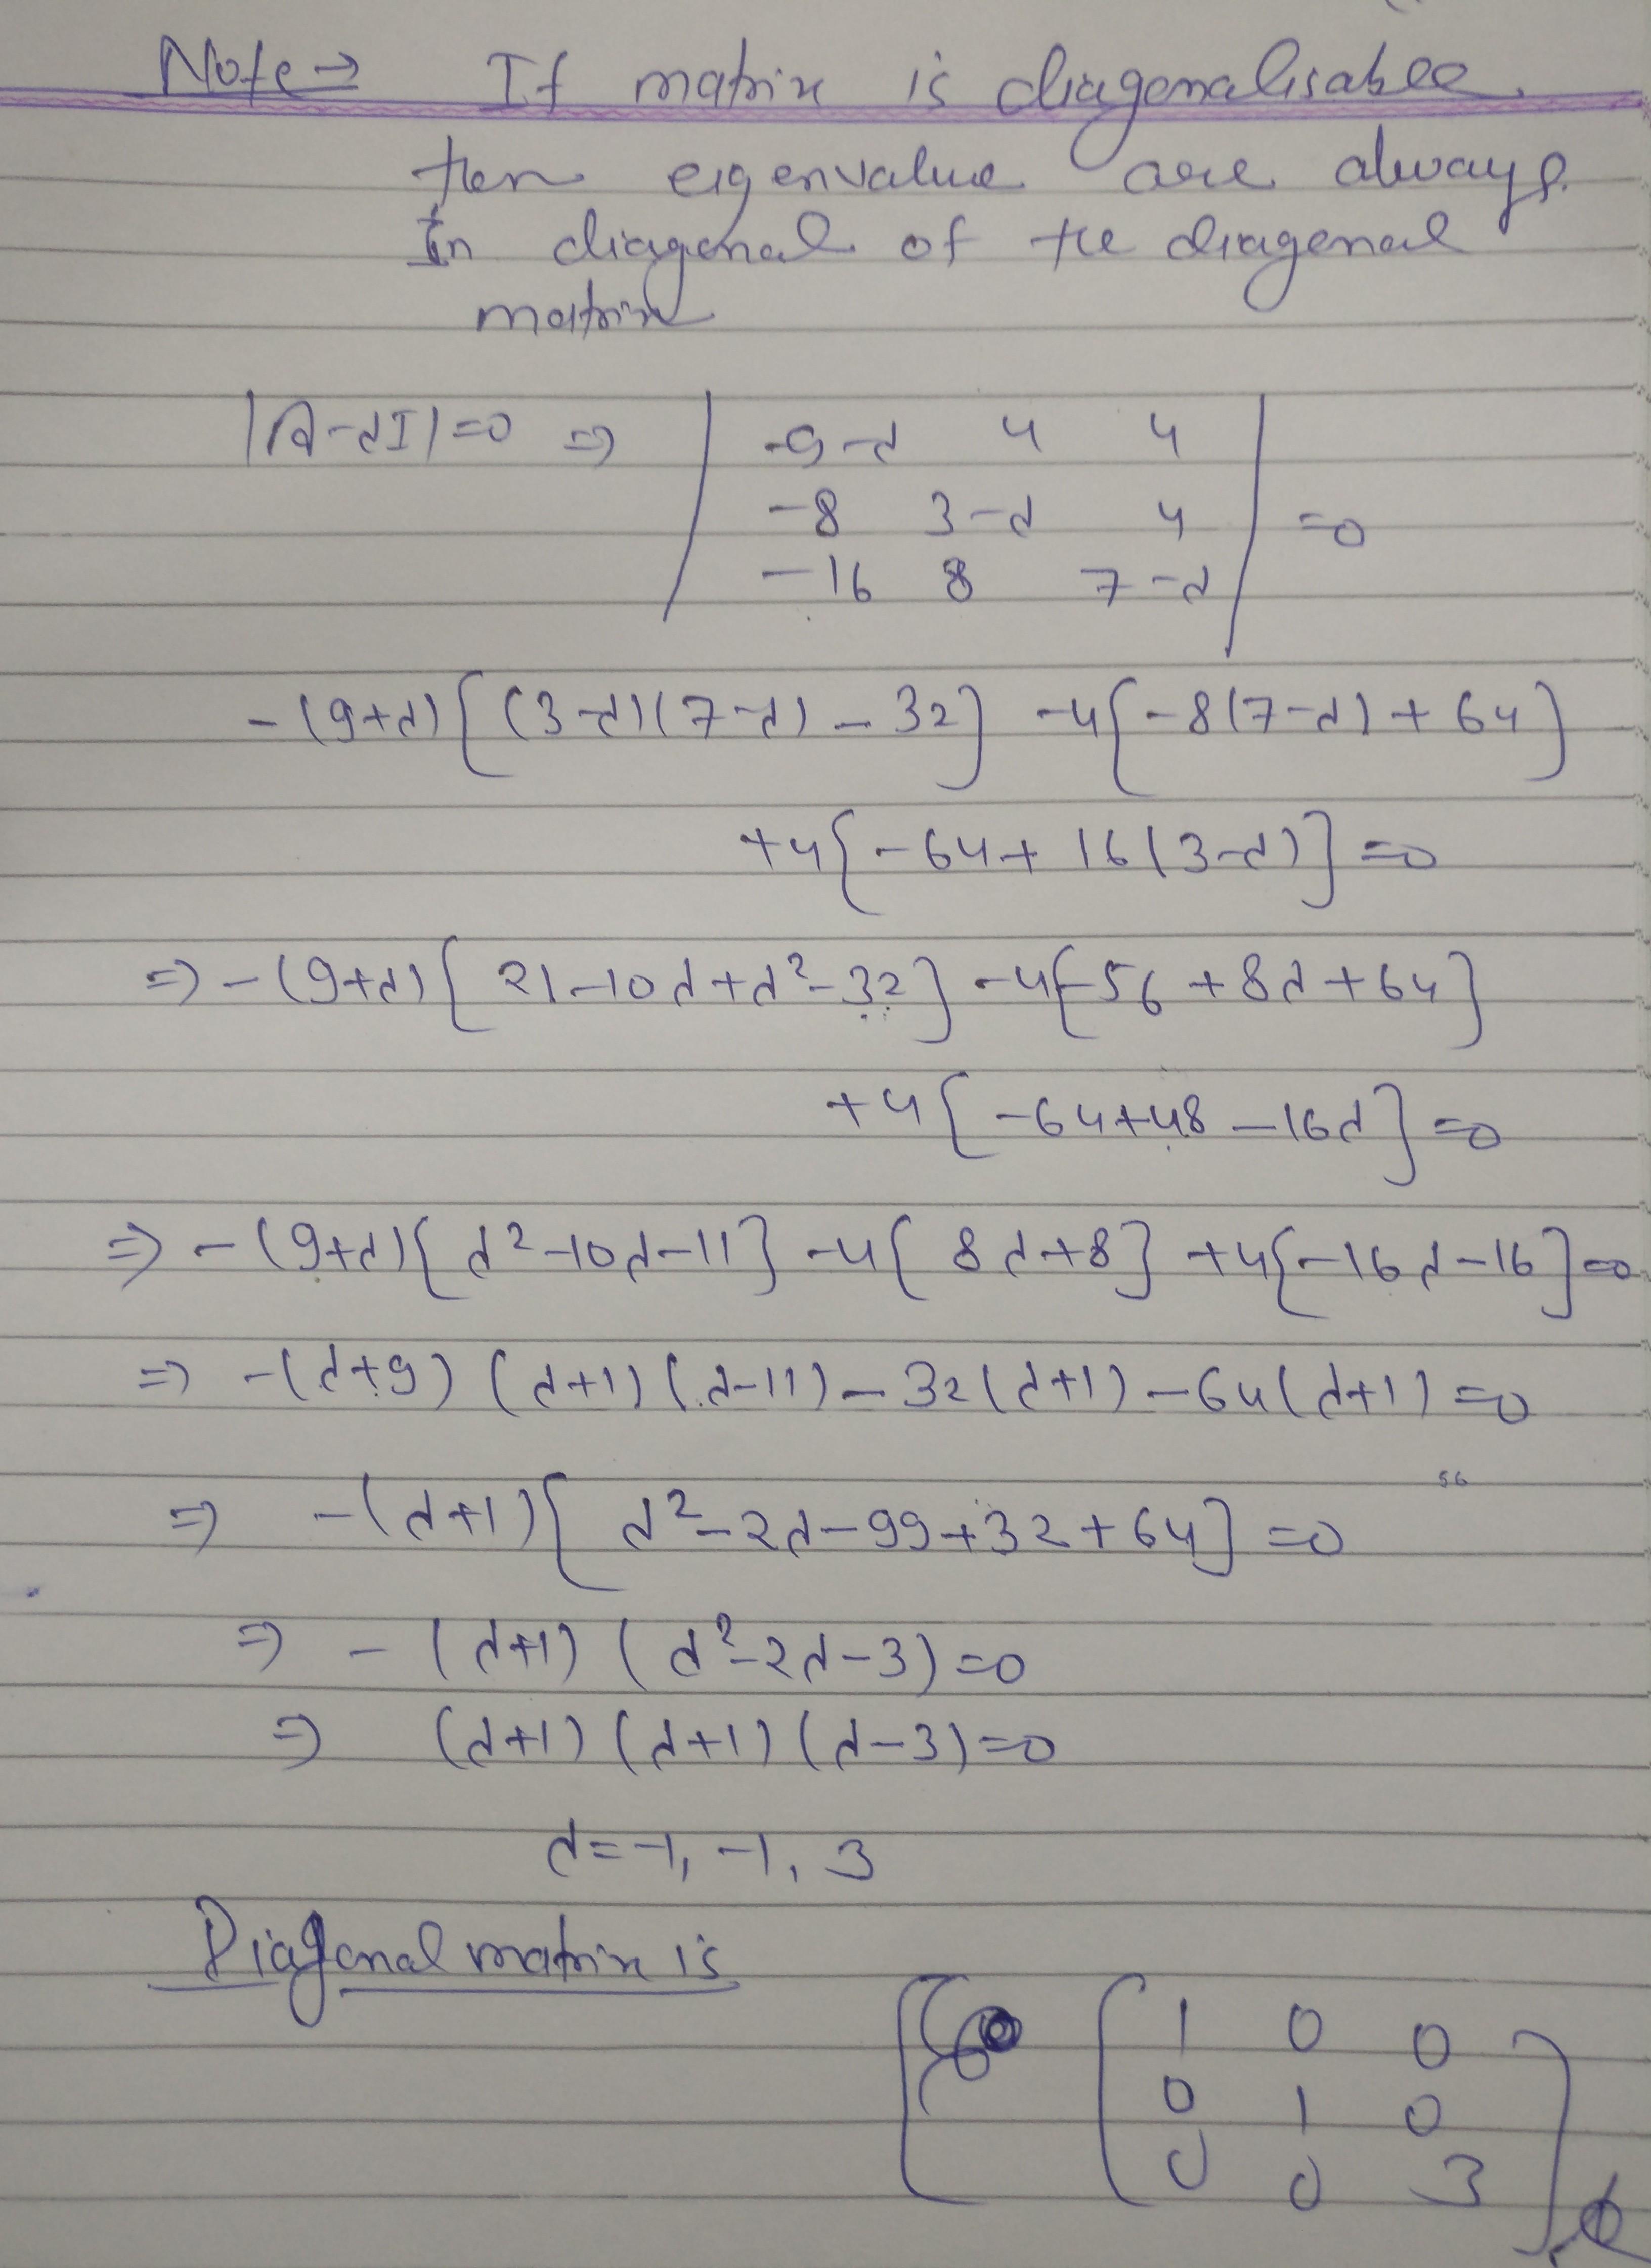 Note → If matrix is diagonalisable
then eigenvalue are always
In diagonal of the diagonal
matrix
|A-λI|=0 ⇒ | -9-λ 4 4 |
| -8 3-λ 4 | =0
| -16 8 7-λ |
-(9+λ)[(3-λ)(7-λ) - 32] -4[-8(7-λ) + 64]
+4[-64+ 16(3-λ)] =0
⇒ -(9+λ)[21-10λ+λ²-32] -4[-56 +8λ+64]
+4[-64+48 -16λ] =0
⇒ -(9+λ)[λ²-10λ-11] -4[8λ+8] +4[-16λ-16]=0
⇒ -(λ+9) (λ+1) (λ-11) - 32(λ+1) -64(λ+1) =0
56
⇒ -(λ+1)[λ²-2λ-99+32+64] =0
⇒ -(λ+1) (λ²-2λ-3)=0
⇒ (λ+1) (λ+1) (λ-3)=0
λ=-1, -1, 3
Diagonal matrix is
[ 1 0 0
0 1 0
0 0 3 ]